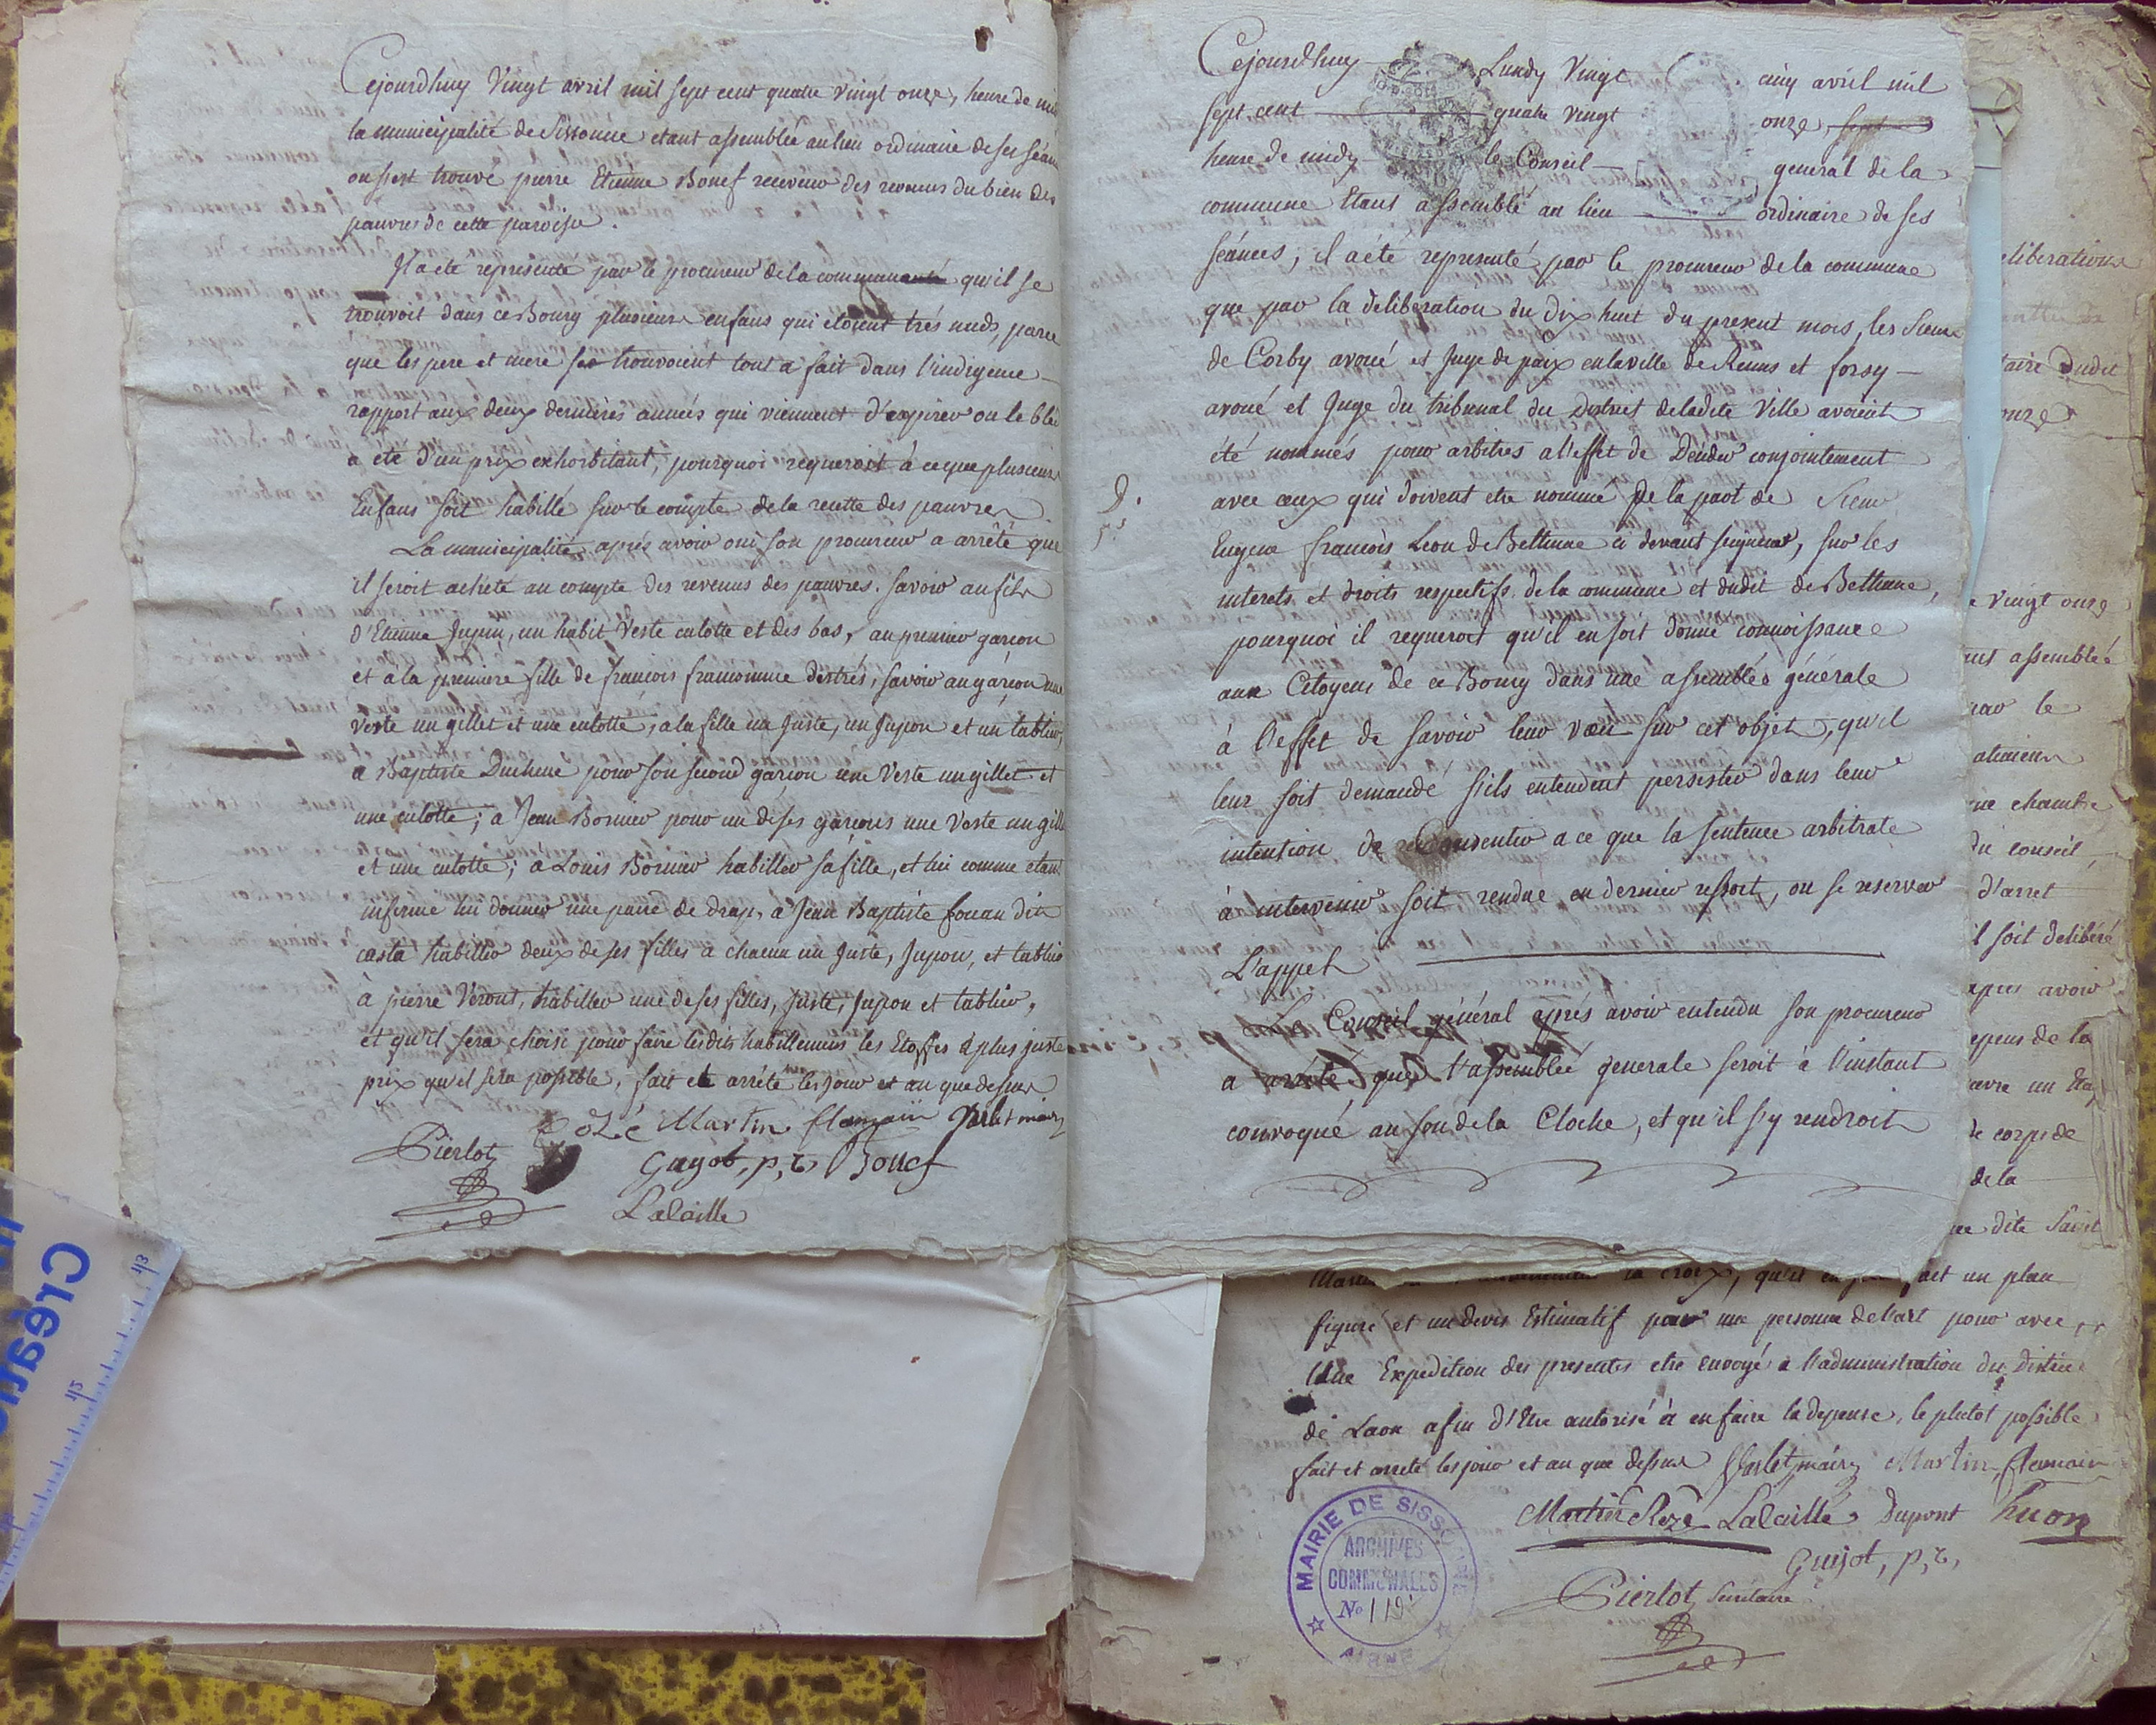 Cejourdhuy Vingt avril mil sept cent quatre vingt onze, heure de
la municipalité de Sissonne etant assemblée au lieu ordinaire de ses séan
ou s'est trouvé pierre Etienne Bouef receveur des revenus du bien des
pauvres de cette paroisse.
Il a ete representé par le procureur de la communauté qu'il se
trouvoit dans ce Bourg plusieurs enfans qui etoient trés nuds, parce
que les pere et mere se trouvoient tout a fait dans l'indigence
rapport aux deux dernieres années qui viennent d'expirer ou le bled
a eté d'un prix exhorbitant, pourquoi requeroit à ce que plusieurs
Enfans soit habillé sur le compte de la recette des pauvres
La municipalité, aprés avoir oui son procureur a arrêté que
il seroit acheté au compte des revenus des pauvres. savoir au fils
d'Etienne Jupin, un habit veste culotte et des bas, au premier garcon
et a la premiere fille de francois francomme destrés, savoir au garcon une
veste un gillet et une culotte, a la fille un Juste, un Jupon et un tablier,
a Baptiste Duchene pour son second garcon une veste un gillet et
une culotte; a Jean Bornier pour un de ses garcons une veste un gill
et une culotte; a Louis Bornier habiller sa fille, et lui comme etant
infirme lui donner une paire de draps, a Jean Baptiste fouan dit
casta habiller deux de ses filles a chacun un Juste, Jupon, et tablier
à pierre Veront, habiller une de ses filles, Juste, Jupon et tablier,
et qu'il sera choisi pour faire lesdits habillemens les Etoffes a plus juste
prix qu'il sera possible, fait et arrété les jour et an que dessus
Rozé Martin flamain Varlet maire
Pierlot Guyot, p, c, Bouef
Lalaille
Cejourdhuy Lundy Vingt cinq avril mil
sept cent quatre vingt onze, sept
heure de midy le Conseil général de la
commune Etant assemblé au lieu ordinaire de ses
séances, il a été representé par le procureur de la commune
que par la deliberation du dix huit du present mois, les Sieurs
de Corby avoué et Juge de paix en la ville de Reims et forsy
avoué et Juge du tribunal du District de ladite Ville avoient
été nommés pour arbitres a l'effet de Rendre conjointement
avec ceux qui doivent etre nommé de la part de Sieur
Eugene francois Leon de Bethune ci devant seigneur, sur les
interets et droits respectifs de la commune et dudit de Bethune,
pourquoi il requeroit qu'il en soit donné connoissance
aux Citoyens de ce Bourg dans une assemblée générale
à l'effet de savoir leur vœu sur cet objet, qu'il
leur soit demandé s'ils entendent persister dans leur
intention de consentir a ce que la sentence arbitrale
à intervenir soit rendue en dernier ressort, ou se reserver
L'appel
Le Conseil général aprés avoir entendu son procureur
a arrété, que l'assemblée generale seroit à l'instant
convoqué au son de la Cloche, et qu'il s'y rendroit
eliberations
taire dudit
onze
e vingt onze
ant assemblée
par le
ne chambre
du conseil,
d'arret
il soit deliberé
apres avoir
epens de la
le corps de
de la
dite Saint
la croix, fait un plan
figuré et un devis Estimatif par une personne de l'art pour avec
Une Expedition des presentes etre envoyé a l'administration du District
de Laon afin d'Etre autorisé à en faire la depense, le plutot possible
fait et arreté les jour et an que dessus Varlet maire Martin flamain
Martin Rozé Lalaille Dupont huon
Guyot, p, c,
Pierlot Secretaire
MAIRIE DE SISSONNE
ARCHIVES
COMMUNALES
No 119
AISNE
Créati